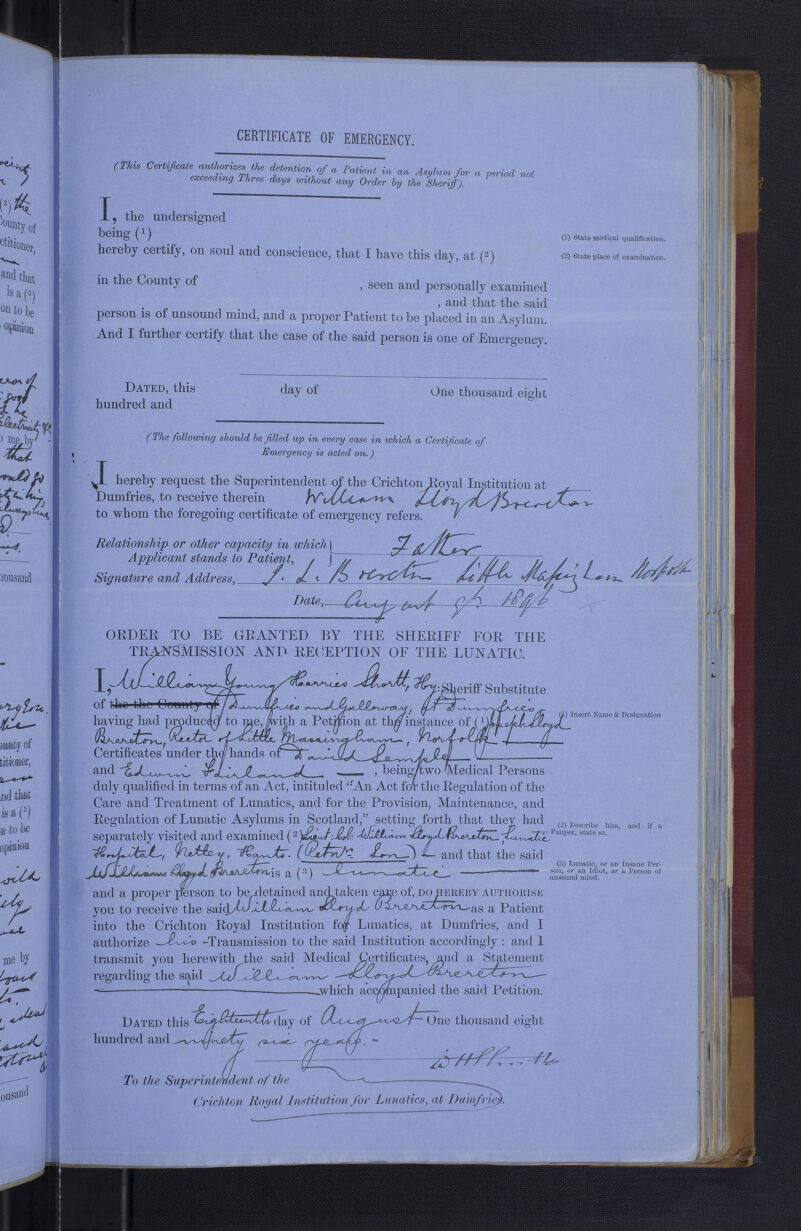 CERTIFICATE OF EMERGENCY.
(This Certificate authorizes the detention of a Patient in an Asylum for a period not
exceeding Three days without any Order by the Sheriff).
I, the undersigned
being (1)
hereby certify, on soul and conscience, that I have this day, at (2)
in the County of , seen and personally examined
, and that the said
person is of unsound mind, and a proper Patient to be placed in an Asylum.
And I further certify that the case of the said person is one of Emergency.
(1) State medical qualification.
(2) State place of examination.
DATED, this day of One thousand eight
hundred and
(The following should be filled up in every case in which a Certificate of
Emergency is acted on.)
I hereby request the Superintendent of the Crichton Royal Institution at
Dumfries, to receive therein William Lloyd Brereton
to whom the foregoing certificate of emergency refers.
Relationship or other capacity in which
Applicant stands to Patient, } Father
Signature and Address, J. L. Brereton Little Massingham Norfolk
Date, August 9th 1896
ORDER TO BE GRANTED BY THE SHERIFF FOR THE
TRANSMISSION AND RECEPTION OF THE LUNATIC.
I, William Young Herries Shortt, Hy: Sheriff Substitute
of the the County of Dumfries and Galloway, at Dumfries
having had produced to me, with a Petition at the instance of (1) Joseph Lloyd
Brereton, Rector of Little Massingham, Norfolk
Certificates under the hands of David Semple
and Edwin Fairland , being two Medical Persons
duly qualified in terms of an Act, intituled "An Act for the Regulation of the
Care and Treatment of Lunatics, and for the Provision, Maintenance, and
Regulation of Lunatic Asylums in Scotland," setting forth that they had
separately visited and examined (2) Lieut: Col: William Lloyd Brereton, Lunatic
Hospital, Netley, Hants. (Petnr's. Son) and that the said
William Lloyd Brereton is a (3) lunatic
and a proper person to be detained and taken care of, DO HEREBY AUTHORISE
you to receive the said William Lloyd Brereton as a Patient
into the Crichton Royal Institution for Lunatics, at Dumfries, and I
authorize his -Transmission to the said Institution accordingly : and I
transmit you herewith the said Medical Certificates, and a Statement
regarding the said William Lloyd Brereton
which accompanied the said Petition.
(1) Insert Name & Designation
(2) Describe him, and if a
Pauper, state so.
(3) Lunatic, or an Insane Per-
son, or an Idiot, or a Person of
unsound mind.
DATED this Eighteenth day of August One thousand eight
hundred and ninety six years.
To the Superintendent of the
Crichton Royal Institution for Lunatics, at Dumfries.